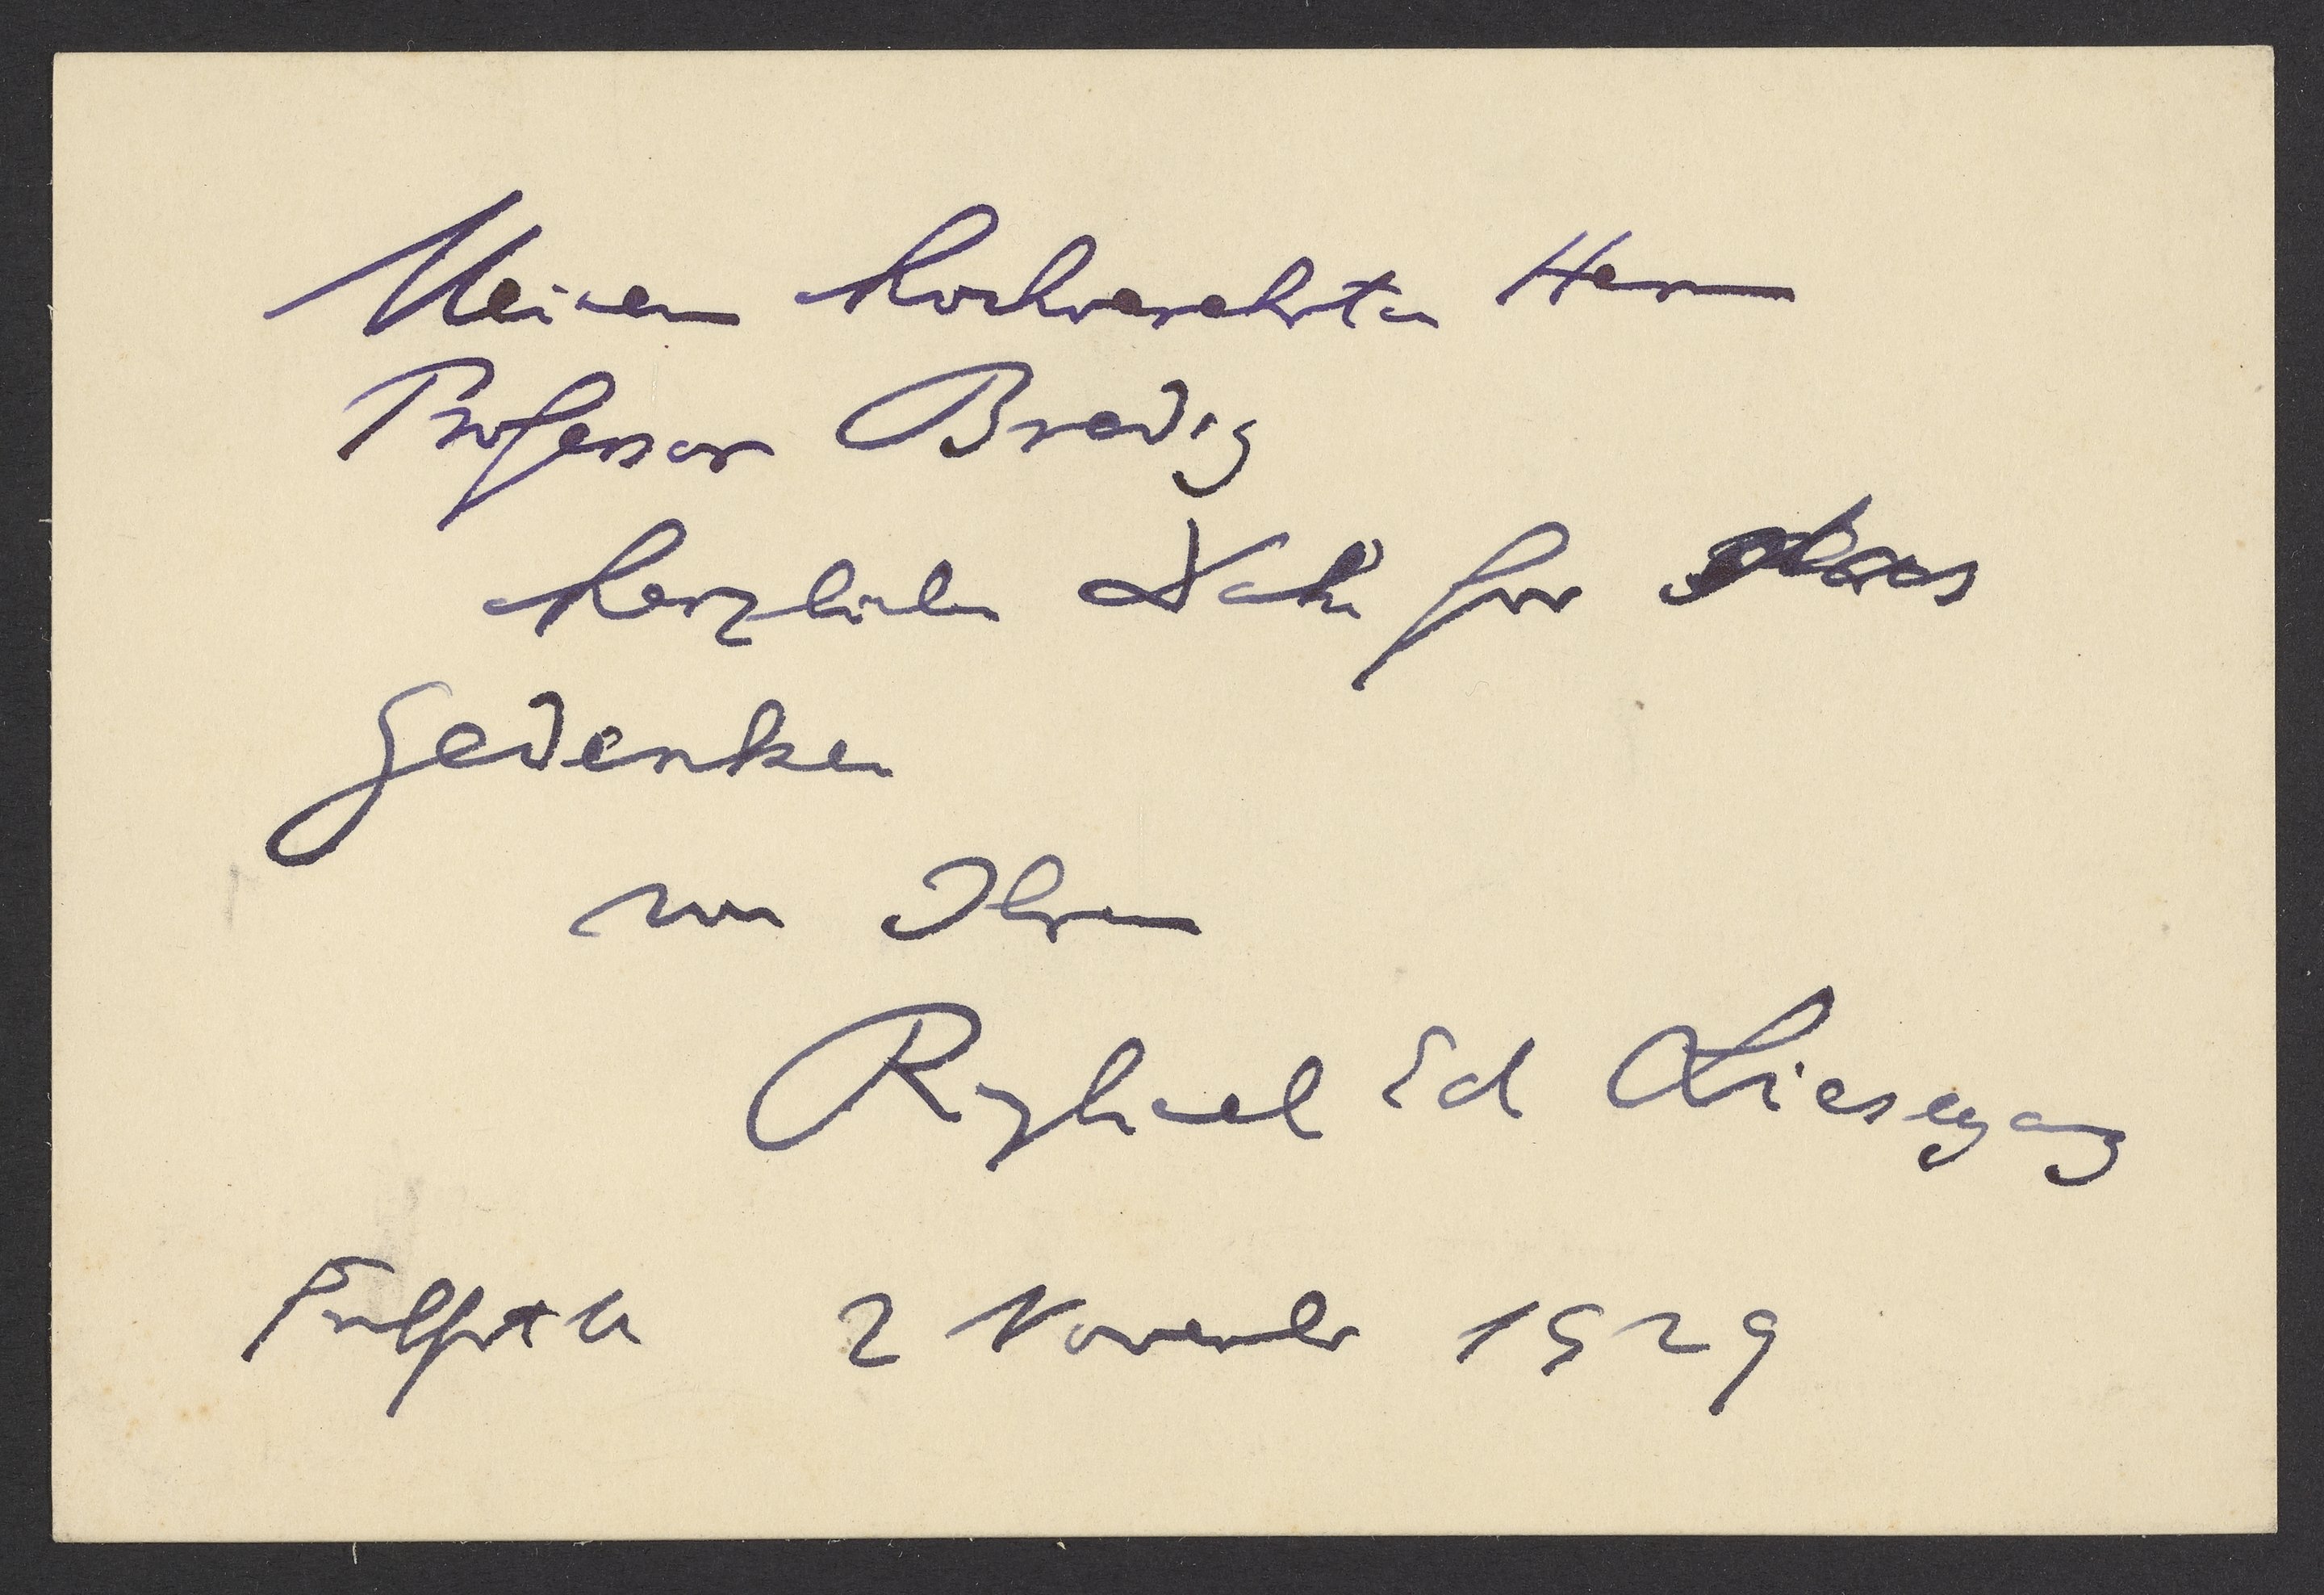 Meinem hochverehrten Herrn
Professor Bredig
herzlichen Dank für das
Gedenken
von Ihrem
Raphael Ed Liesegang
2 November 1929